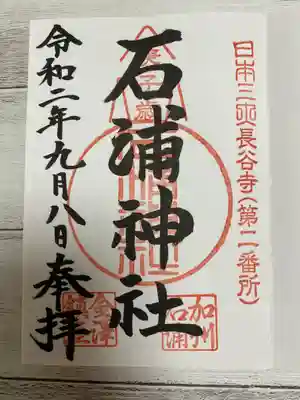 日本三大長谷寺(第二番所)
石浦神社
加州
石浦
令和二年九月八日奉拝
金澤